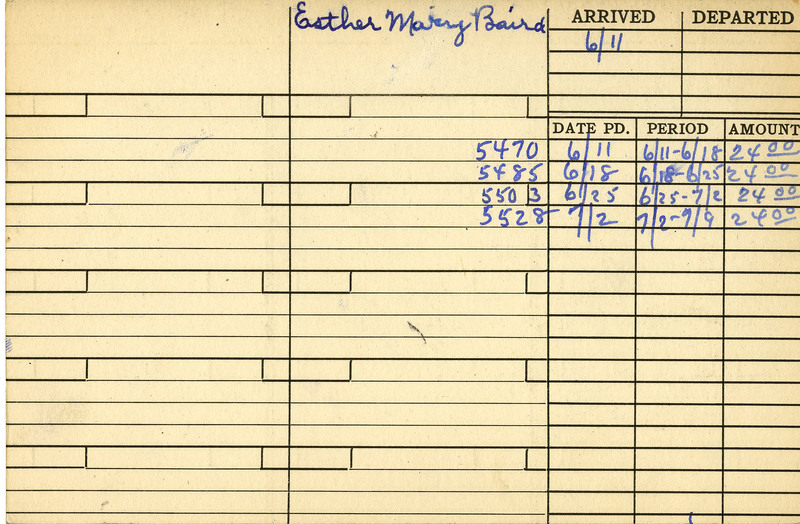 Esther Mary Baird
ARRIVED DEPARTED
6/11
DATE PD. PERIOD AMOUNT
5470 6/11 6/11-6/18 24 00
5485 6/18 6/18-6/25 24 00
5503 6/25 6/25-7/2 24 00
5528 7/2 7/2-7/9 24 00